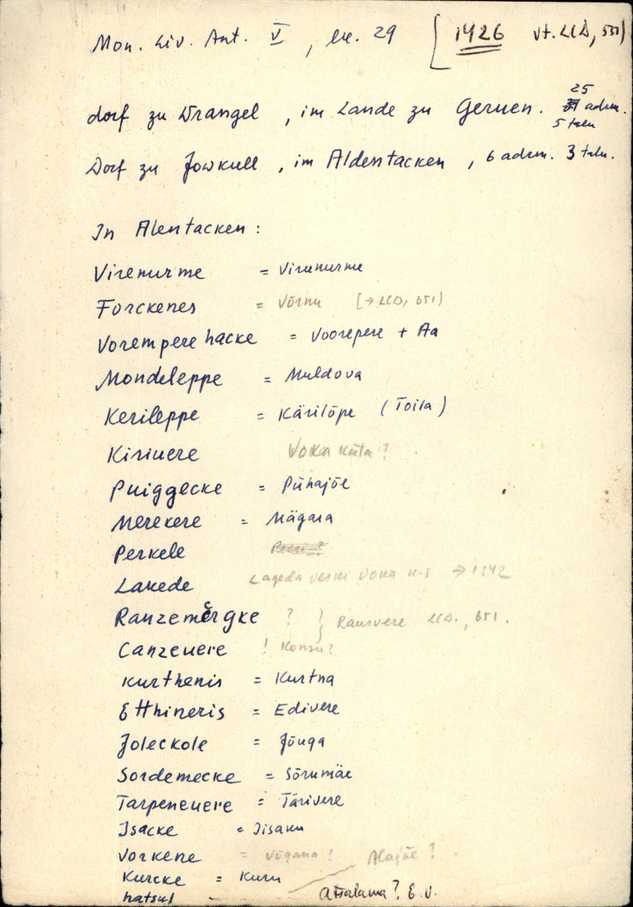 Mon. Liv. Ant. V, lk. 29 [1426 vt. LCD, 551)
dorf zu Wrangel, im Lande zu Geruen. 25 adrm. 5 taln
Dorf zu Jowkull, im Aldentacken, 6 adrm. 3 taln.
In Alentacken:
Virenurme = Virunurme
Forckenes = Võrnu [→ LCD, 551)
Vorempere hacke = Voorepere + Aa
Mondeleppe = Muldova
Kerileppe = Kärilõpe (Toila)
Kiriuere Voka küla?
Puiggecke = Pühajõe
Merekere = Mägara
Perkele
Lakede Lageda veski Voka → 1242
Ranzemergke ? } Rausvere LCD., 551.
Canzeuere ! Konsu?
Kurthenis = Kurtna
Etthineris = Edivere
Joleckole = Jõuga
Sordemecke = Sõrumäe
Tarpeneuere = Tärivere
Isacke = Iisaku
Vorkene = Võgana? Alajõe?
Kurcke = Kuru
hatsul Atsalama? E.V.